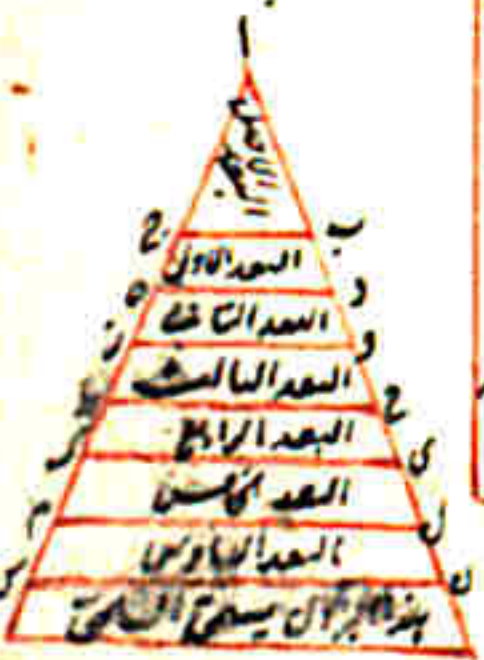 ا
البعد الاصل
ج ب
البعد الاول
ه د
البعد الثانى
ز و
البعد الثالث
ط ح
البعد الرابع
ك ى
البعد الخامس
م ل
البعد السادس
س ن